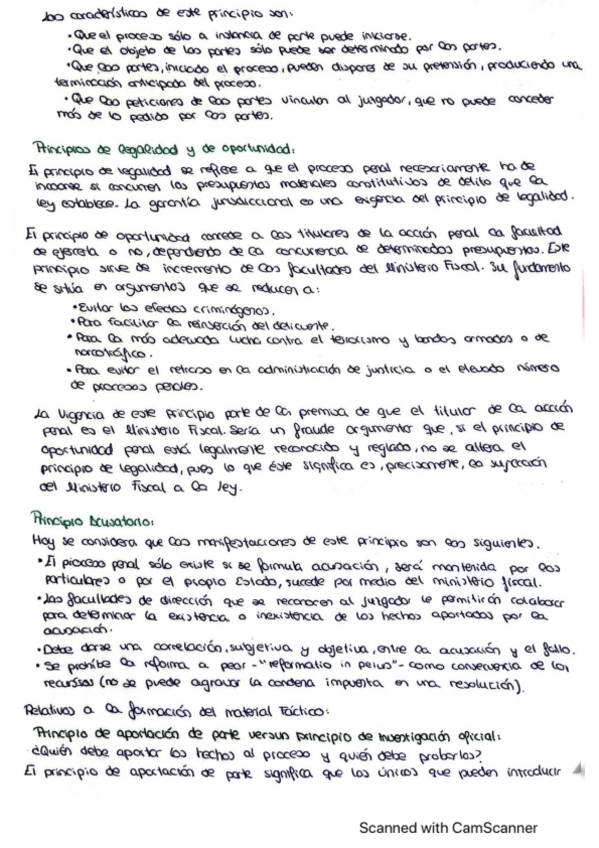 Las características de este principio son:
• Que el proceso sólo a instancia de parte puede iniciarse.
• Que el objeto de las partes sólo puede ser determinado por las partes.
• Que las partes, iniciado el proceso, pueden disponer de su pretensión, produciendo una
terminación anticipada del proceso.
• Que las peticiones de las partes vinculan al juzgador, que no puede conceder
más de lo pedido por las partes.
Principios de legalidad y de oportunidad:
El principio de legalidad se refiere a que el proceso penal necesariamente ha de
incoarse si concurren los presupuestos materiales constitutivos de delito que la
ley establece. La garantía jurisdiccional es una exigencia del principio de legalidad.
El principio de oportunidad concede a los titulares de la acción penal la facultad
de ejercerla o no, dependiendo de la concurrencia de determinados presupuestos. Este
principio sirve de incremento de las facultades del Ministerio Fiscal. Su fundamento
se sitúa en argumentos que se reducen a:
• Evitar los efectos criminógenos.
• Para facilitar la reinserción del delincuente.
• Para la más adecuada lucha contra el terrorismo y bandas armadas o de
narcotráfico.
• Para evitar el retraso en la administración de justicia o el elevado número
de procesos penales.
La vigencia de este principio parte de la premisa de que el titular de la acción
penal es el Ministerio Fiscal. Sería un fraude argumentar que, si el principio de
oportunidad penal está legalmente reconocido y reglado, no se altera el
principio de legalidad, pues lo que éste significa es, precisamente, la sujeción
del Ministerio Fiscal a la ley.
Principio Acusatorio:
Hoy se considera que las manifestaciones de este principio son las siguientes.
• El proceso penal sólo existe si se formula acusación, será mantenida por los
particulares o por el propio Estado, sucede por medio del ministerio fiscal.
• Las facultades de dirección que se reconocen al juzgador le permitirán colaborar
para determinar la existencia o inexistencia de los hechos aportados por la
acusación.
• Debe darse una correlación, subjetiva y objetiva, entre la acusación y el fallo.
• Se prohíbe la reforma a peor -"reformatio in peius"- como consecuencia de los
recursos (no se puede agravar la condena impuesta en una resolución).
Relativos a la formación del material fáctico:
Principio de aportación de parte versus principio de investigación oficial:
¿Quién debe aportar los hechos al proceso y quién debe probarlos?
El principio de aportación de parte significa que los únicos que pueden introducir
Scanned with CamScanner